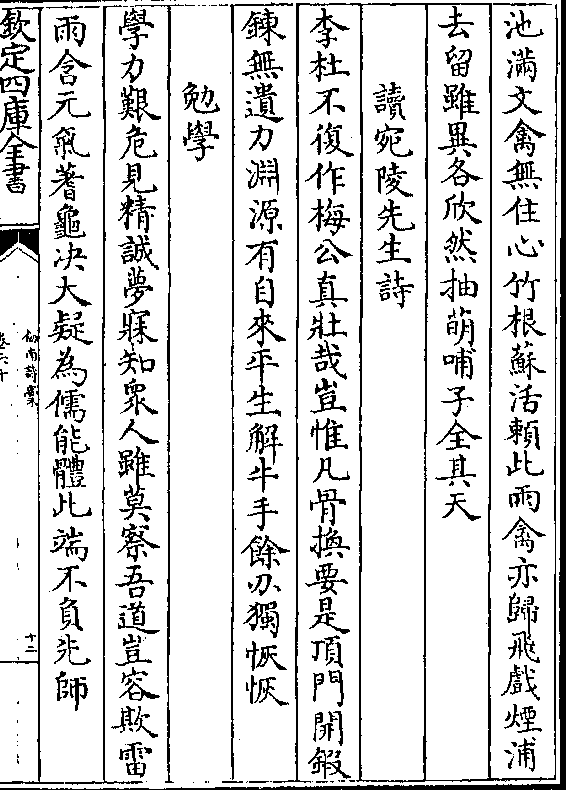 池滿文禽無住心竹根蘇活頼此雨禽亦歸飛戲煙浦
去留雖異各欣然抽萌哺子全其天
讀宛陵先生詩
李杜不復作梅公真壯哉豈惟凡骨換要是頂門開鍜
鍊無遺力淵源有自來平生解牛手餘刃獨恢恢
勉學
學力艱危見精誠夢寐知衆人雖莫察吾道豈容欺雷
雨含元氣蓍龜决大疑為儒能體此端不負先師
欽定四庫全書
劍南詩稾
卷六十
十二